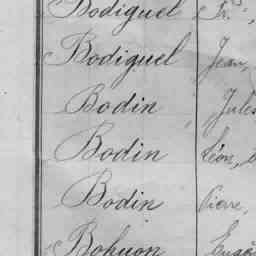 Bodiguel Fr.
Bodiguel Jean,
Bodin Jules
Bodin Léon,
Bodin Pierre,
Bohuon Eugè